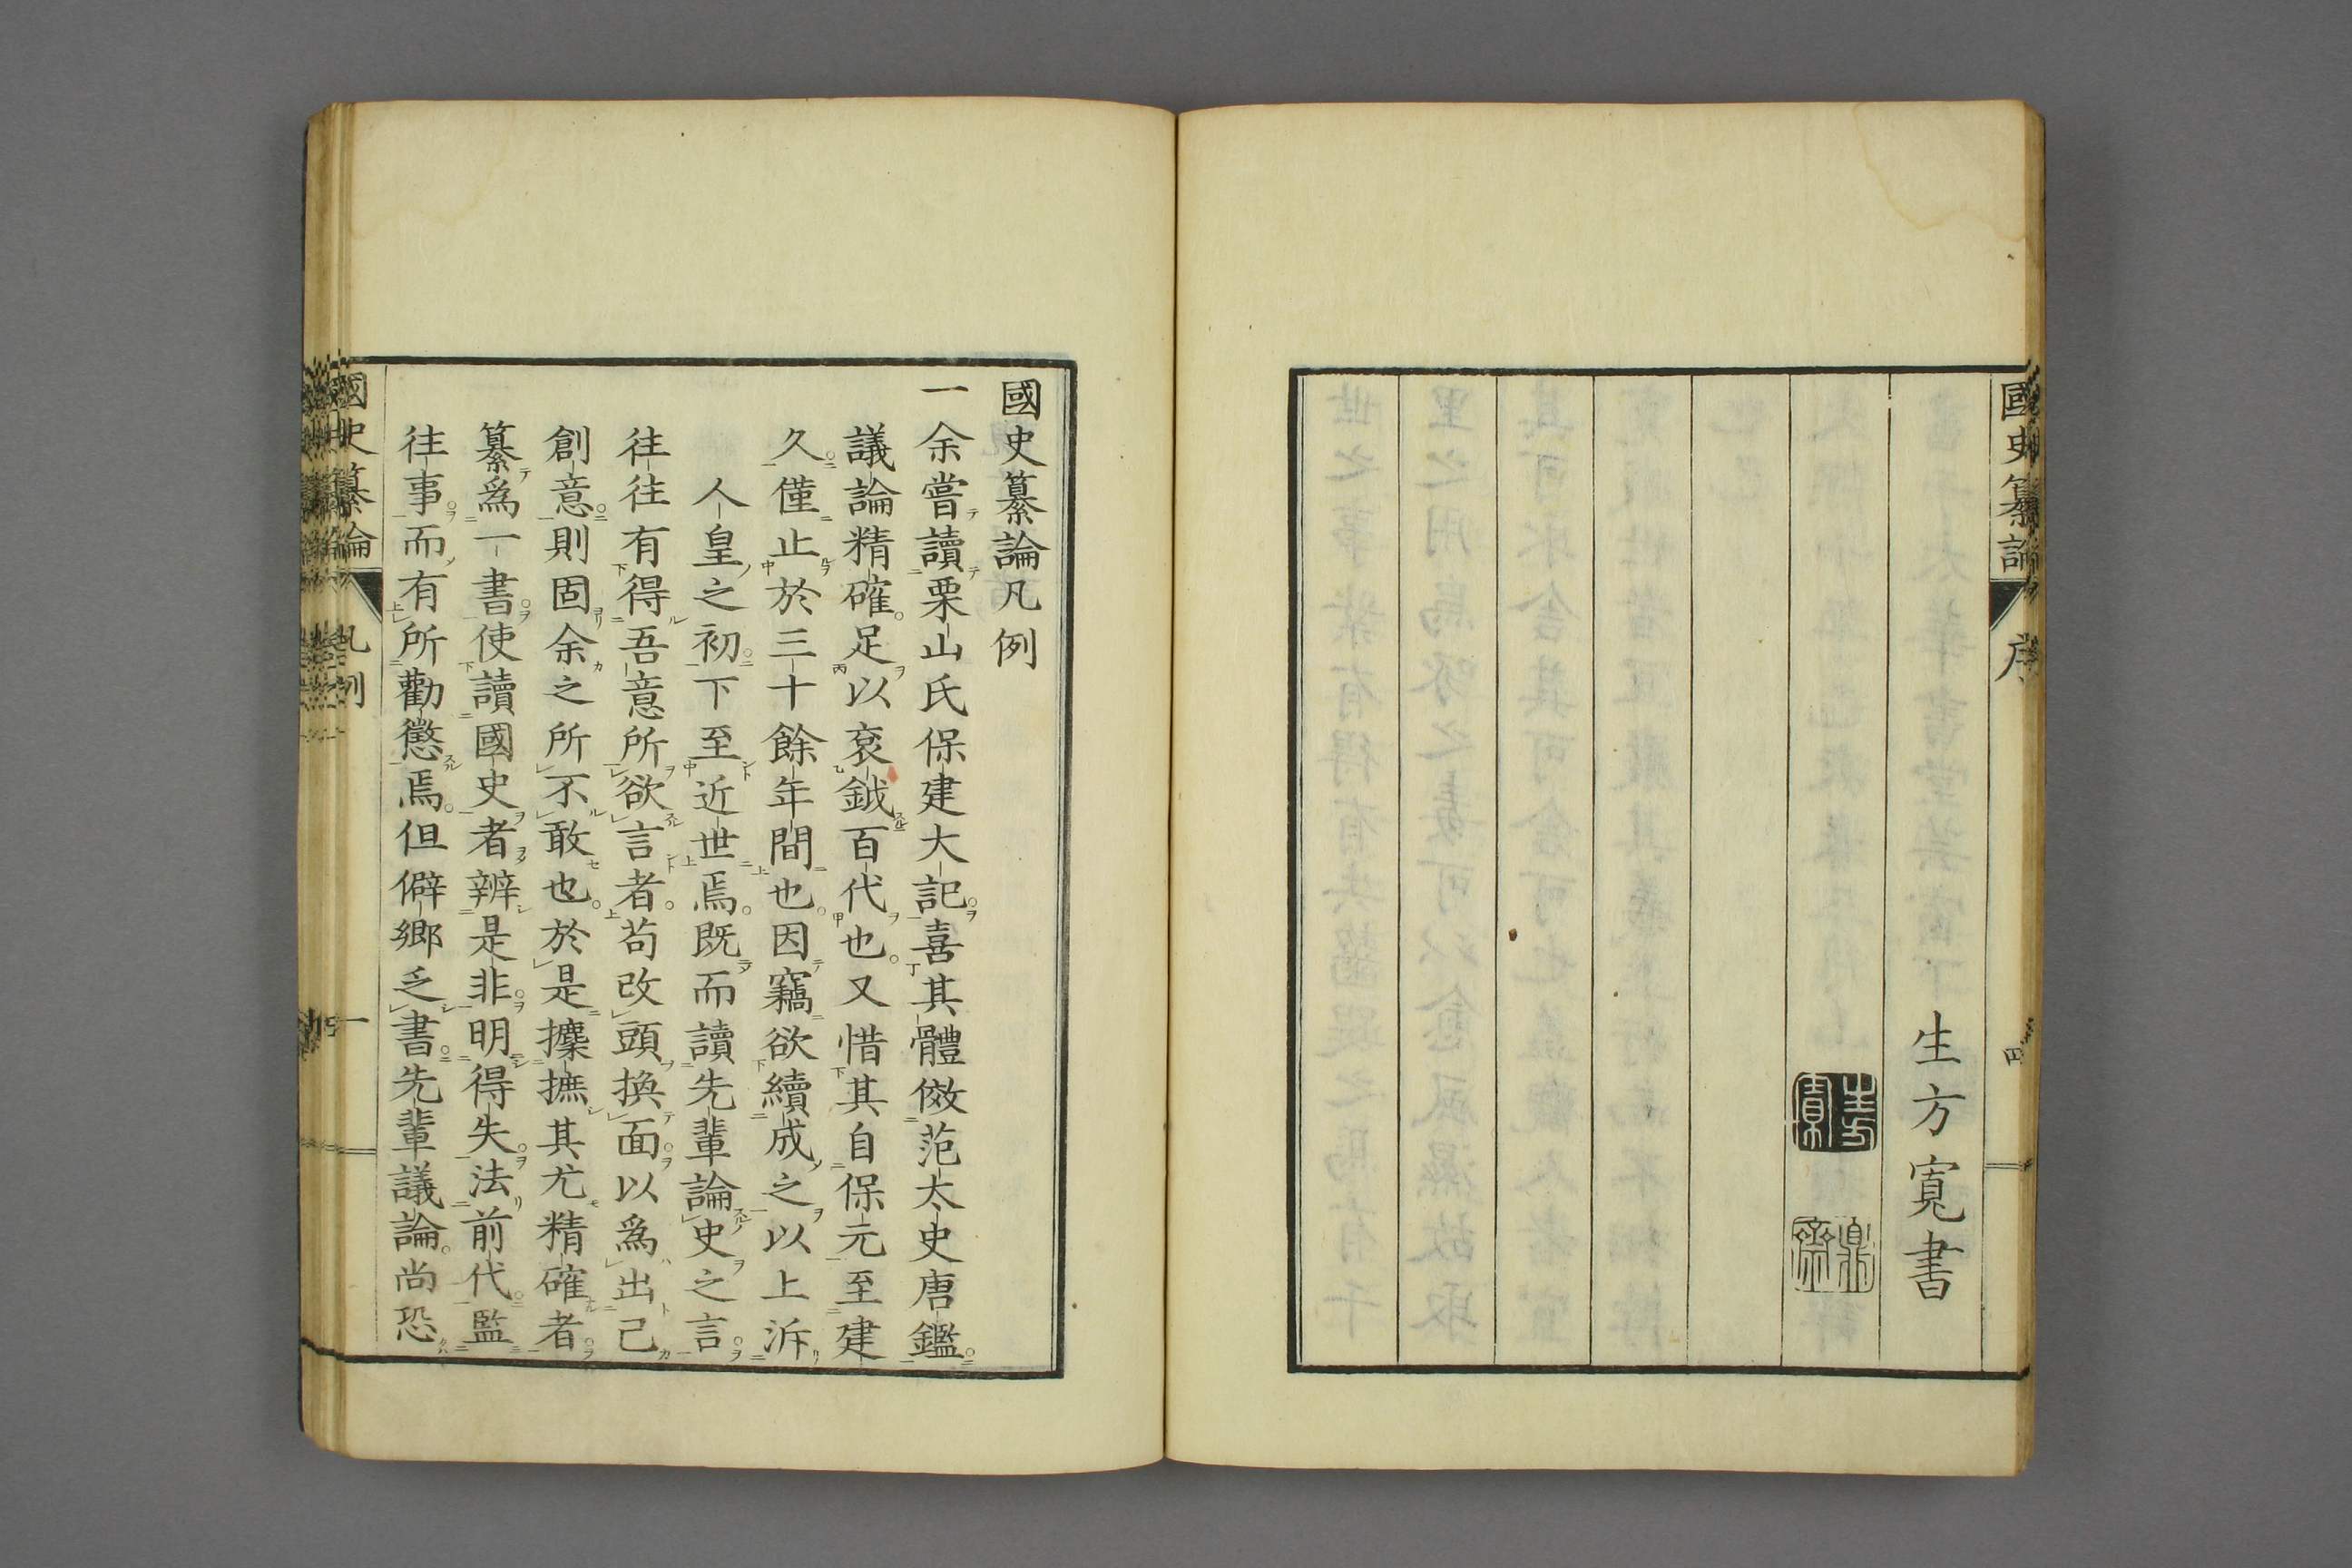 國史纂論
序
四
生方寛書
生方寛
鼎齋
國史纂論凡例
一余嘗讀栗山氏保建大記喜其體傚范太史唐鑑
議論精確足以袞鉞百代也又惜其自保元至建
久僅止於三十餘年間也因竊欲續成之以上泝
人皇之初下至近世焉既而讀先輩論史之言
往往有得吾意所欲言者苟改頭換面以爲出己
創意則固余之所不敢也於是攈摭其尤精確者
纂爲一書使讀國史者辨是非明得失法前代監
往事而有所勸懲焉但僻鄉乏書先輩議論尚恐
國史纂論
凡例
一